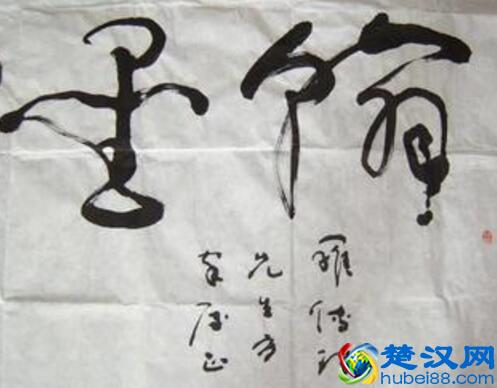 翰墨
羅傳
先生方
家 正
楚汉网
hubei88.com